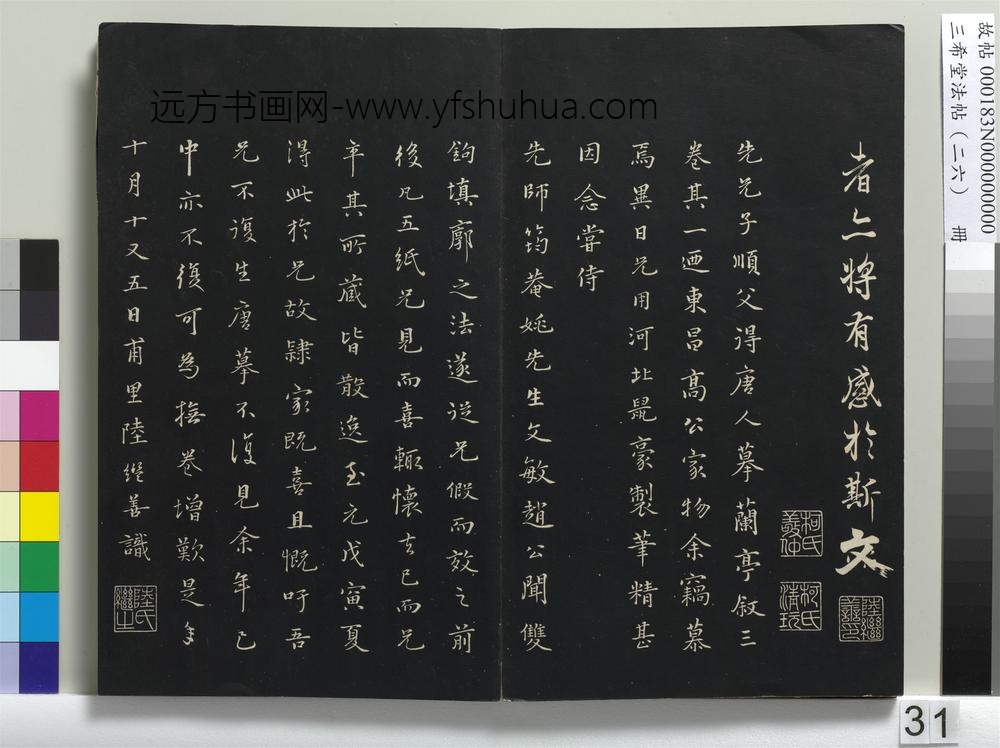 远方书画网-www.yfshuhua.com
者亦将有感於斯文
先兄子順父得唐人摹蘭亭叙三
卷其一迺東昌高公家物余竊慕
焉異日兄用河北鼠豪製筆精甚
因念嘗侍
先師筠菴姚先生文敏趙公聞雙
鉤填廓之法遂從兄假而效之前
後凡五紙兄見而喜輒懷去已而兄
卒其所藏皆散逸至元戊寅夏
得此於兄故隸家既喜且慨吁吾
兄不復生唐摹不復見余年已
中亦不復可為撫卷增歎是年
十月十又五日甫里陸繼善識
柯氏敬仲
柯氏清玩
陸繼善印
陸氏繼之
故帖000183N000000000
三希堂法帖（二六） 冊
31